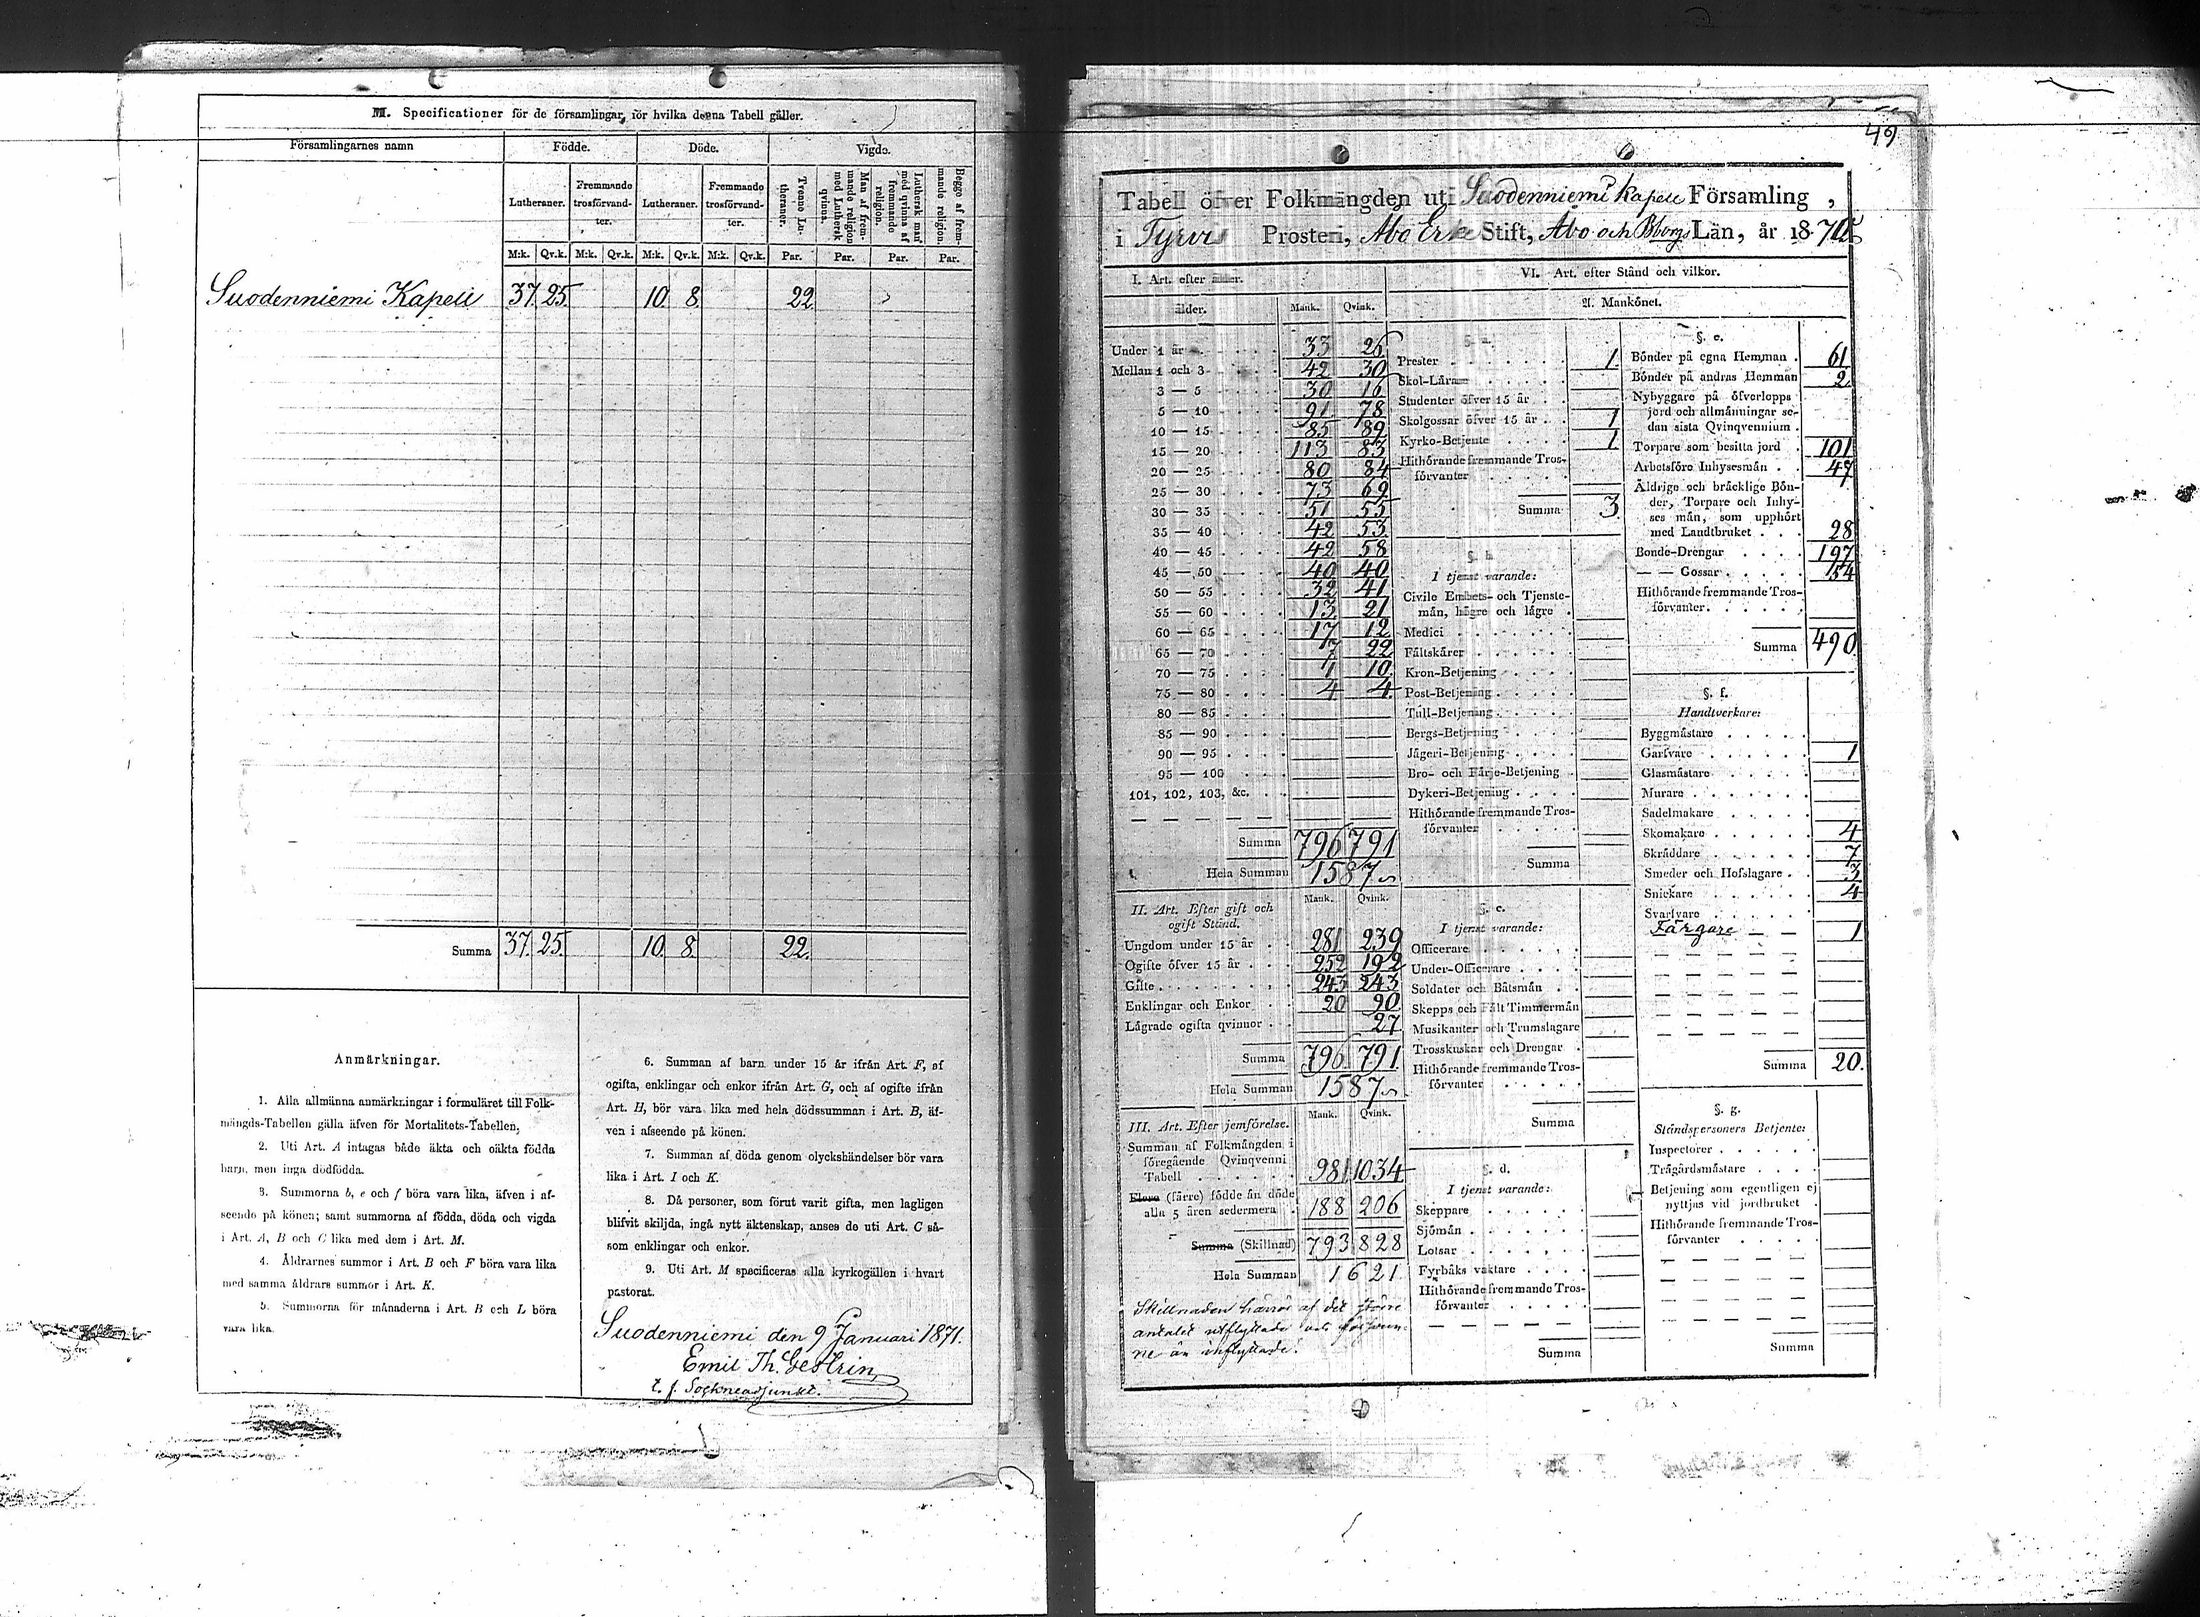 M. Specificationer för de församlingar, för hvilka denna Tabell gäller.
Församlingarnes namn Födde. Döde. Vigde.
Lutheraner. Fremmande trosförvandter. Lutheraner. Fremmande trosförvandter. Tvenne Lutheraner. Man af fremmande religion med Luthersk qvinna. Luthersk man med qvinna af fremmande religion. Begge af fremmande religion.
M:k. Qv.k. M:k. Qv.k. M:k. Qv.k. M:k. Qv.k. Par. Par. Par. Par.
Suodenniemi Kapell 37. 25. 10. 8. 22.
Summa 37. 25. 10. 8. 22.
Anmärkningar.
1. Alla allmänna anmärkningar i formuläret till Folk-
mängds-Tabellen gälla äfven för Mortalitets-Tabellen.
2. Uti Art. A intagas både äkta och oäkta födda
barn, men inga dödfödda.
3. Summorna b, e och f böra vara lika, äfven i af-
seende på könen; samt summorna af födda, döda och vigda
i Art. A, B och C lika med dem i Art. M.
4. Åldrarnes summor i Art. B och F böra vara lika
med samma åldrars summor i Art. K.
5. Summorna för månaderna i Art. B och L böra
vara lika.
6. Summan af barn under 15 år ifrån Art. F, af
ogifta, enklingar och enkor ifrån Art. G, och af ogifte ifrån
Art. H, bör vara lika med hela dödssumman i Art. B, äf-
ven i afseende på könen.
7. Summan af döda genom olyckshändelser bör vara
lika i Art. I och K.
8. Då personer, som förut varit gifta, men lagligen
blifvit skiljda, ingå nytt äktenskap, anses de uti Art. C så-
som enklingar och enkor.
9. Uti Art. M specificeras alla kyrkogällen i hvart
pastorat.
Suodenniemi den 9 Januari 1871.
Emil Th. Gestrin,
t. f. Sockneadjunkt.
49
Tabell öfver Folkmängden uti Suodenniemi Kapell Församling,
i Tyrvis Prosteri, Åbo Erke Stift, Åbo och Bborgs Län, år 1870
I. Art. efter ålder.
ålder. Mank. Qvink.
Under 1 år 33 26
Mellan 1 och 3 42 30
3 — 5 30 16
5 — 10 91 78
10 — 15 85 89
15 — 20 113 83
20 — 25 80 84
25 — 30 73 69
30 — 35 51 55
35 — 40 42 53
40 — 45 42 58
45 — 50 40 40
50 — 55 32 41
55 — 60 13 21
60 — 65 17 12
65 — 70 7 22
70 — 75 1 10
75 — 80 4 4
80 — 85
85 — 90
90 — 95
95 — 100
101, 102, 103, &c.
Summa 796 791
Hela Summan 1587
II. Art. Efter gift och
ogift Stånd. Mank. Qvink.
Ungdom under 15 år 281 239
Ogifte öfver 15 år 252 192
Gifte 243 243
Enklingar och Enkor 20 90
Lägrade ogifta qvinnor 27
Summa 796 791
Hela Summan 1587
III. Art. Efter jemförelse. Mank. Qvink.
Summan af Folkmängden i
föregående Qvinqvenni
Tabell 981 1034
Flere (färre) födde än döde
alla 5 åren sedermera 188 206
Summa (Skillnad) 793 828
Hela Summan 1621
Skillnaden härrör af det större
antalet utflyttade och
ne än inflyttade.
VI. Art. efter Stånd och vilkor.
A. Mankönet.
§. a.
Prester 1
Skol-Lärare
Studenter öfver 15 år
Skolgossar öfver 15 år 1
Kyrko-Betjente 1
Hithörande fremmande Tros-
förvanter
Summa 3
§. b.
I tjenst varande:
Civile Embets- och Tjenste-
män, högre och lägre
Medici
Fältskärer
Kron-Betjening
Post-Betjening
Tull-Betjening
Bergs-Betjening
Jägeri-Betjening
Bro- och Färje-Betjening
Dykeri-Betjening
Hithörande fremmande Tros-
förvanter
Summa
§. c.
I tjenst varande:
Officerare
Under-Officerare
Soldater och Båtsmän
Skepps och Fält Timmermän
Musikanter och Trumslagare
Trosskuskar och Drengar
Hithörande fremmande Tros-
förvanter
Summa
§. d.
I tjenst varande:
Skeppare
Sjömän
Lotsar
Fyrbåks vaktare
Hithörande fremmande Tros-
förvanter
Summa
§. e.
Bönder på egna Hemman 61
Bönder på andras Hemman 2
Nybyggare på öfverlopps
jord och allmänningar se-
dan sista Qvinqvennium
Torpare som besitta jord 101
Arbetsföre Inhysesmän 47
Åldrige och bräcklige Bön-
der, Torpare och Inhy-
ses män, som upphört
med Landtbruket 28
Bonde-Drengar 197
— — Gossar 154
Hithörande fremmande Tros-
förvanter
Summa 490
§. f.
Handtverkare:
Byggmästare
Garfvare 1
Glasmästare
Murare
Sadelmakare
Skomakare 4
Skräddare 7
Smeder och Hofslagare 3
Snickare 4
Svarfvare
Färgare 1
Summa 20.
§. g.
Ståndspersoners Betjente:
Inspectorer
Trägårdsmästare
Betjening som egentligen ej
nyttjas vid jordbruket
Hithörande fremmande Tros-
förvanter
Summa